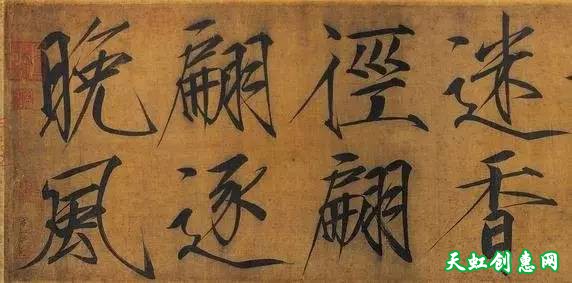 迷香
徑翩
翩逐
晚風
天虹创惠网